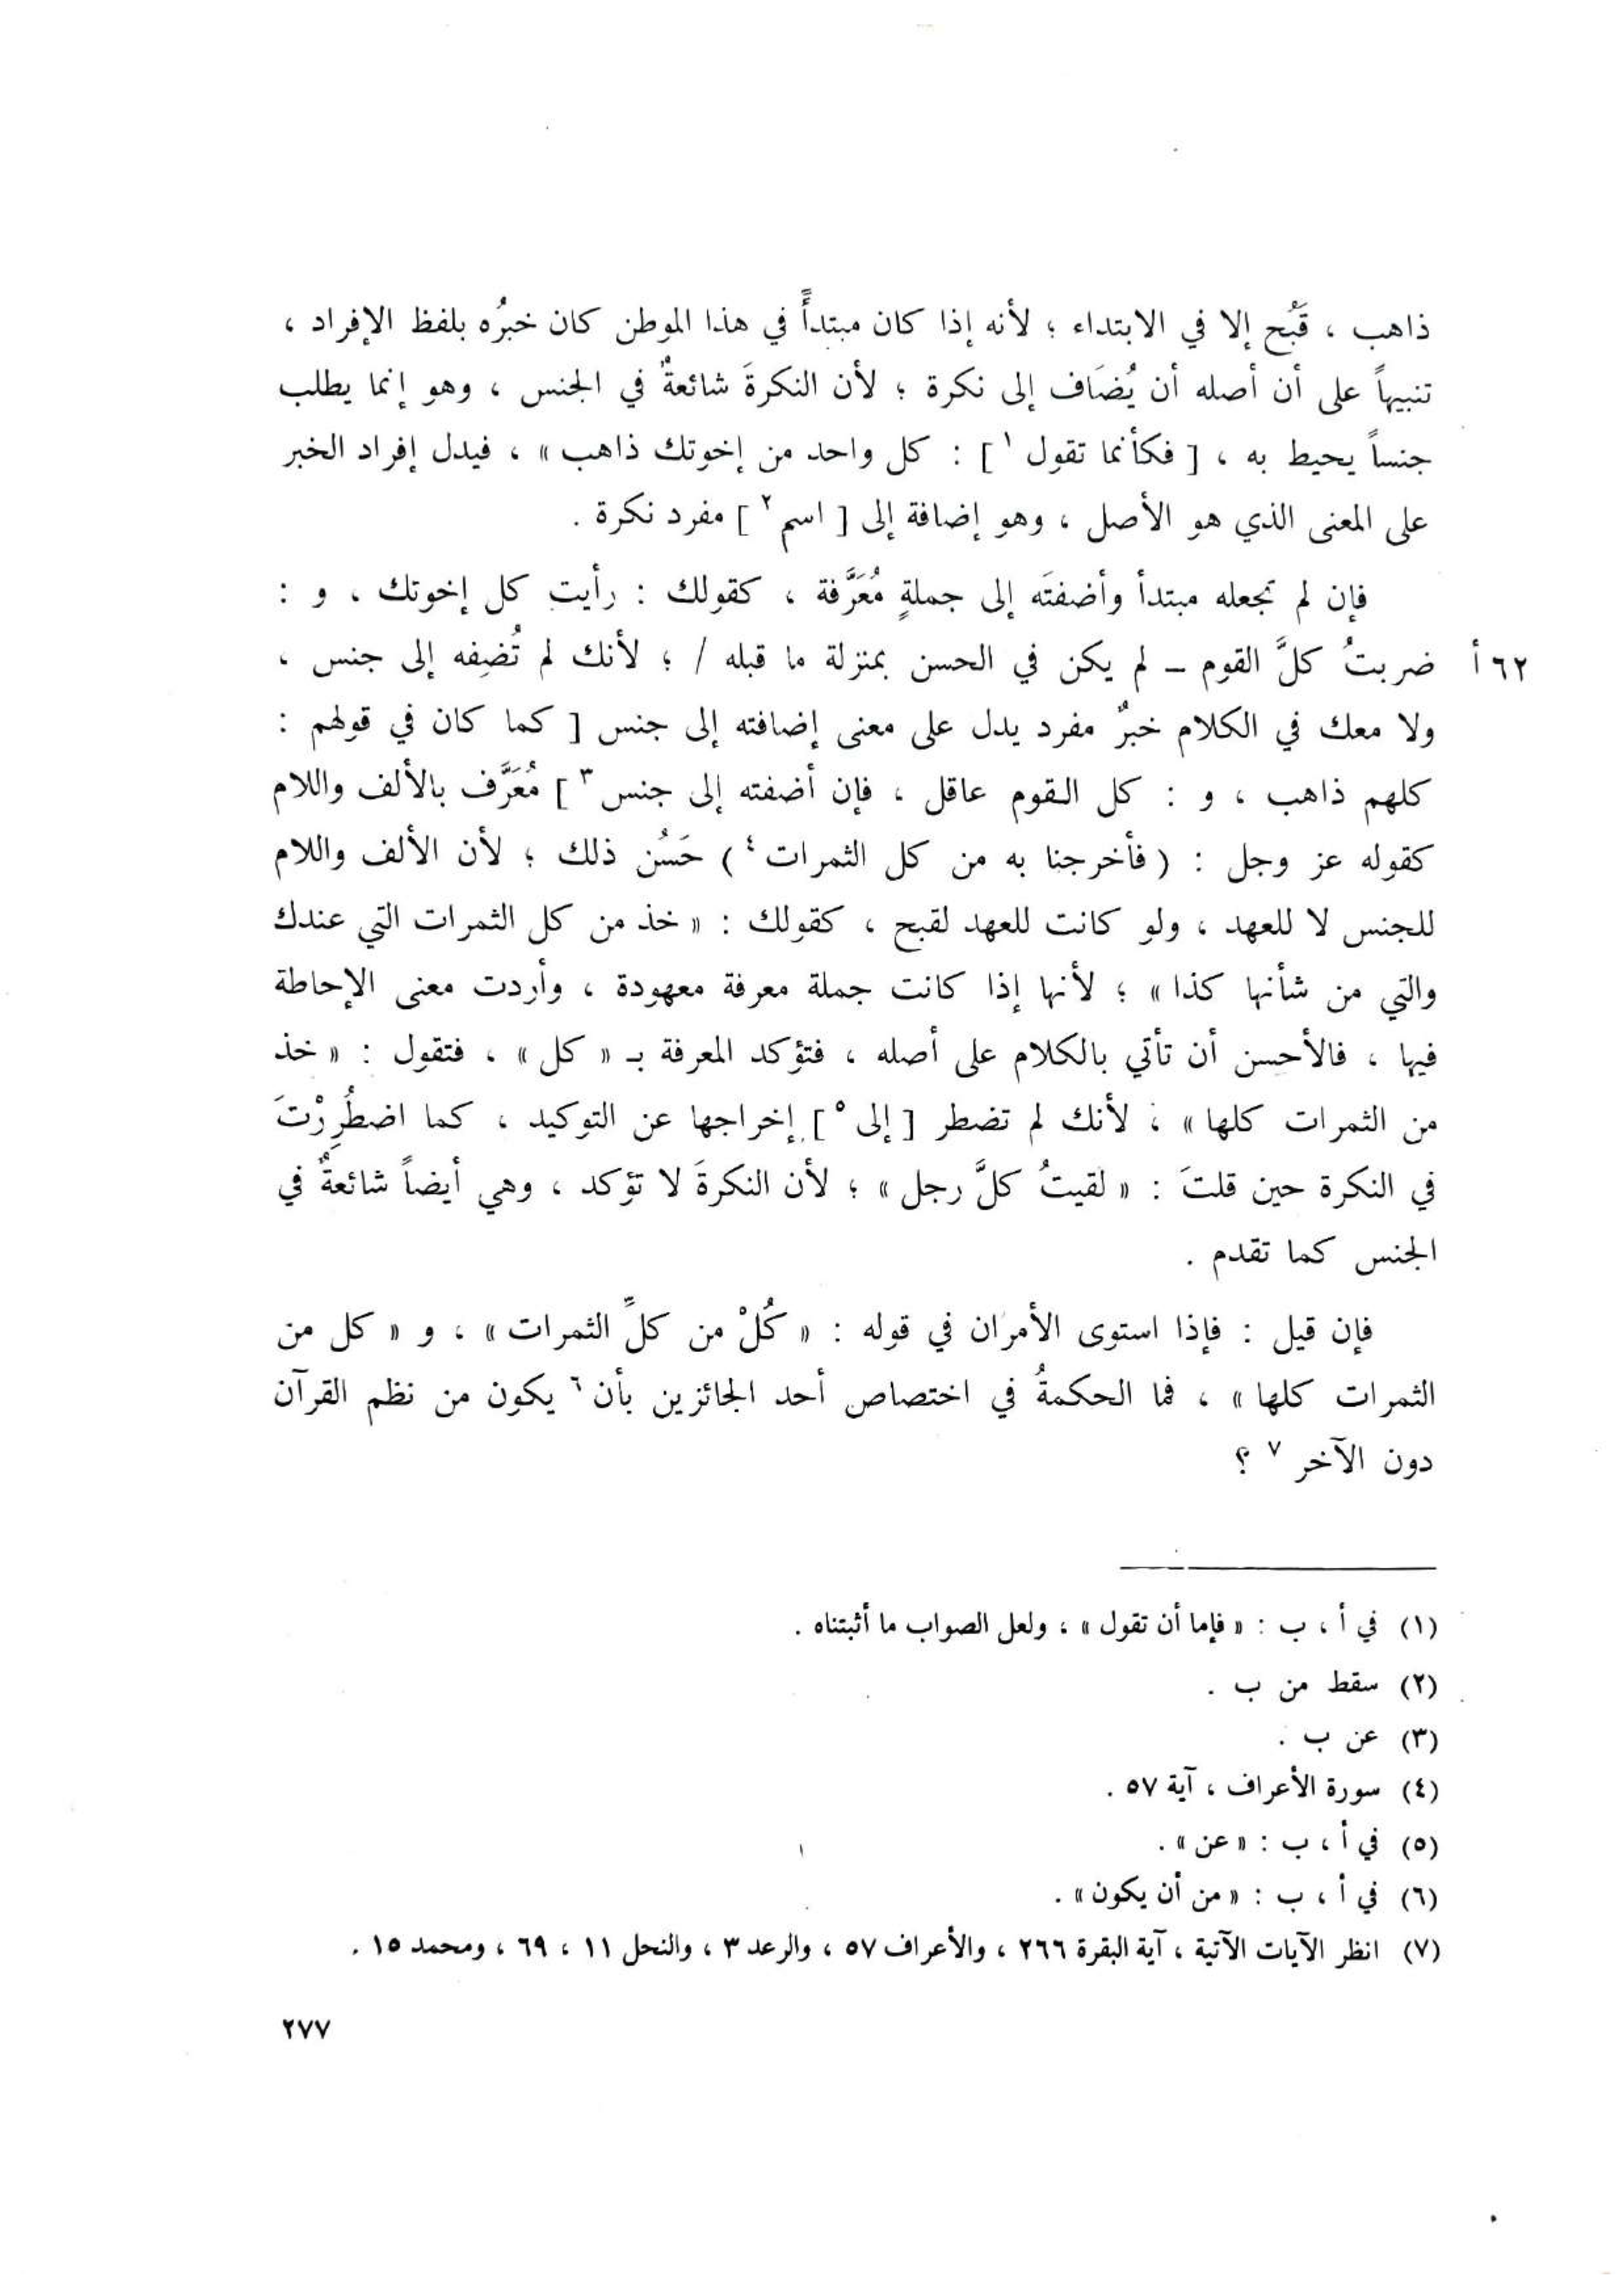 ذاهب ، قَبُح إلا في الابتداء ؛ لأنه إذا كان مبتدأً في هذا الموطن كان خبرُه بلفظ الإفراد ،
تنبيهاً على أن أصله أن يُضَاف إلى نكرة ؛ لأن النكرةَ شائعةٌ في الجنس ، وهو إنما يطلب
جنساً يحيط به ، [ فكأنما تقول ١ ] : كل واحد من إخوتك ذاهب » ، فيدل إفراد الخبر
على المعنى الذي هو الأصل ، وهو إضافة إلى [ اسم ٢ ] مفرد نكرة .
فإن لم تجعله مبتدأ وأضفتَه إلى جملةٍ مُعَرَّفة ، كقولك : رأيت كل إخوتك ، و :
٦٢ أ ضربتُ كلَّ القوم ــ لم يكن في الحسن بمنزلة ما قبله / ؛ لأنك لم تُضِفه إلى جنس ،
ولا معك في الكلام خبرٌ مفرد يدل على معنى إضافته إلى جنس [ كما كان في قولهم :
كلهم ذاهب ، و : كل القوم عاقل ، فإن أضفته إلى جنس ٣ ] مُعَرَّف بالألف واللام
كقوله عز وجل : ( فأخرجنا به من كل الثمرات ٤ ) حَسُن ذلك ؛ لأن الألف واللام
للجنس لا للعهد ، ولو كانت للعهد لقبح ، كقولك : « خذ من كل الثمرات التي عندك
والتي من شأنها كذا » ؛ لأنها إذا كانت جملة معرفة معهودة ، وأردت معنى الإحاطة
فيها ، فالأحسن أن تأتي بالكلام على أصله ، فتؤكد المعرفة بـ « كل » ، فتقول : « خذ
من الثمرات كلها » ، لأنك لم تضطر [ إلى ٥ ] إخراجها عن التوكيد ، كما اضطُرِرْتَ
في النكرة حين قلتَ : « لقيتُ كلَّ رجل » ؛ لأن النكرةَ لا تؤكد ، وهي أيضاً شائعةٌ في
الجنس كما تقدم .
فإن قيل : فإذا استوى الأمران في قوله : « كُلْ من كلِّ الثمرات » ، و « كل من
الثمرات كلها » ، فما الحكمةُ في اختصاص أحد الجائزين بأن ٦ يكون من نظم القرآن
دون الآخر ٧ ؟
(١) في أ ، ب : « فإما أن تقول » ، ولعل الصواب ما أثبتناه .
(٢) سقط من ب .
(٣) عن ب .
(٤) سورة الأعراف ، آية ٥٧ .
(٥) في أ ، ب : « عن » .
(٦) في أ ، ب : « من أن يكون » .
(٧) انظر الآيات الآتية ، آية البقرة ٢٦٦ ، والأعراف ٥٧ ، والرعد ٣ ، والنحل ١١ ، ٦٩ ، ومحمد ١٥ .
٢٧٧